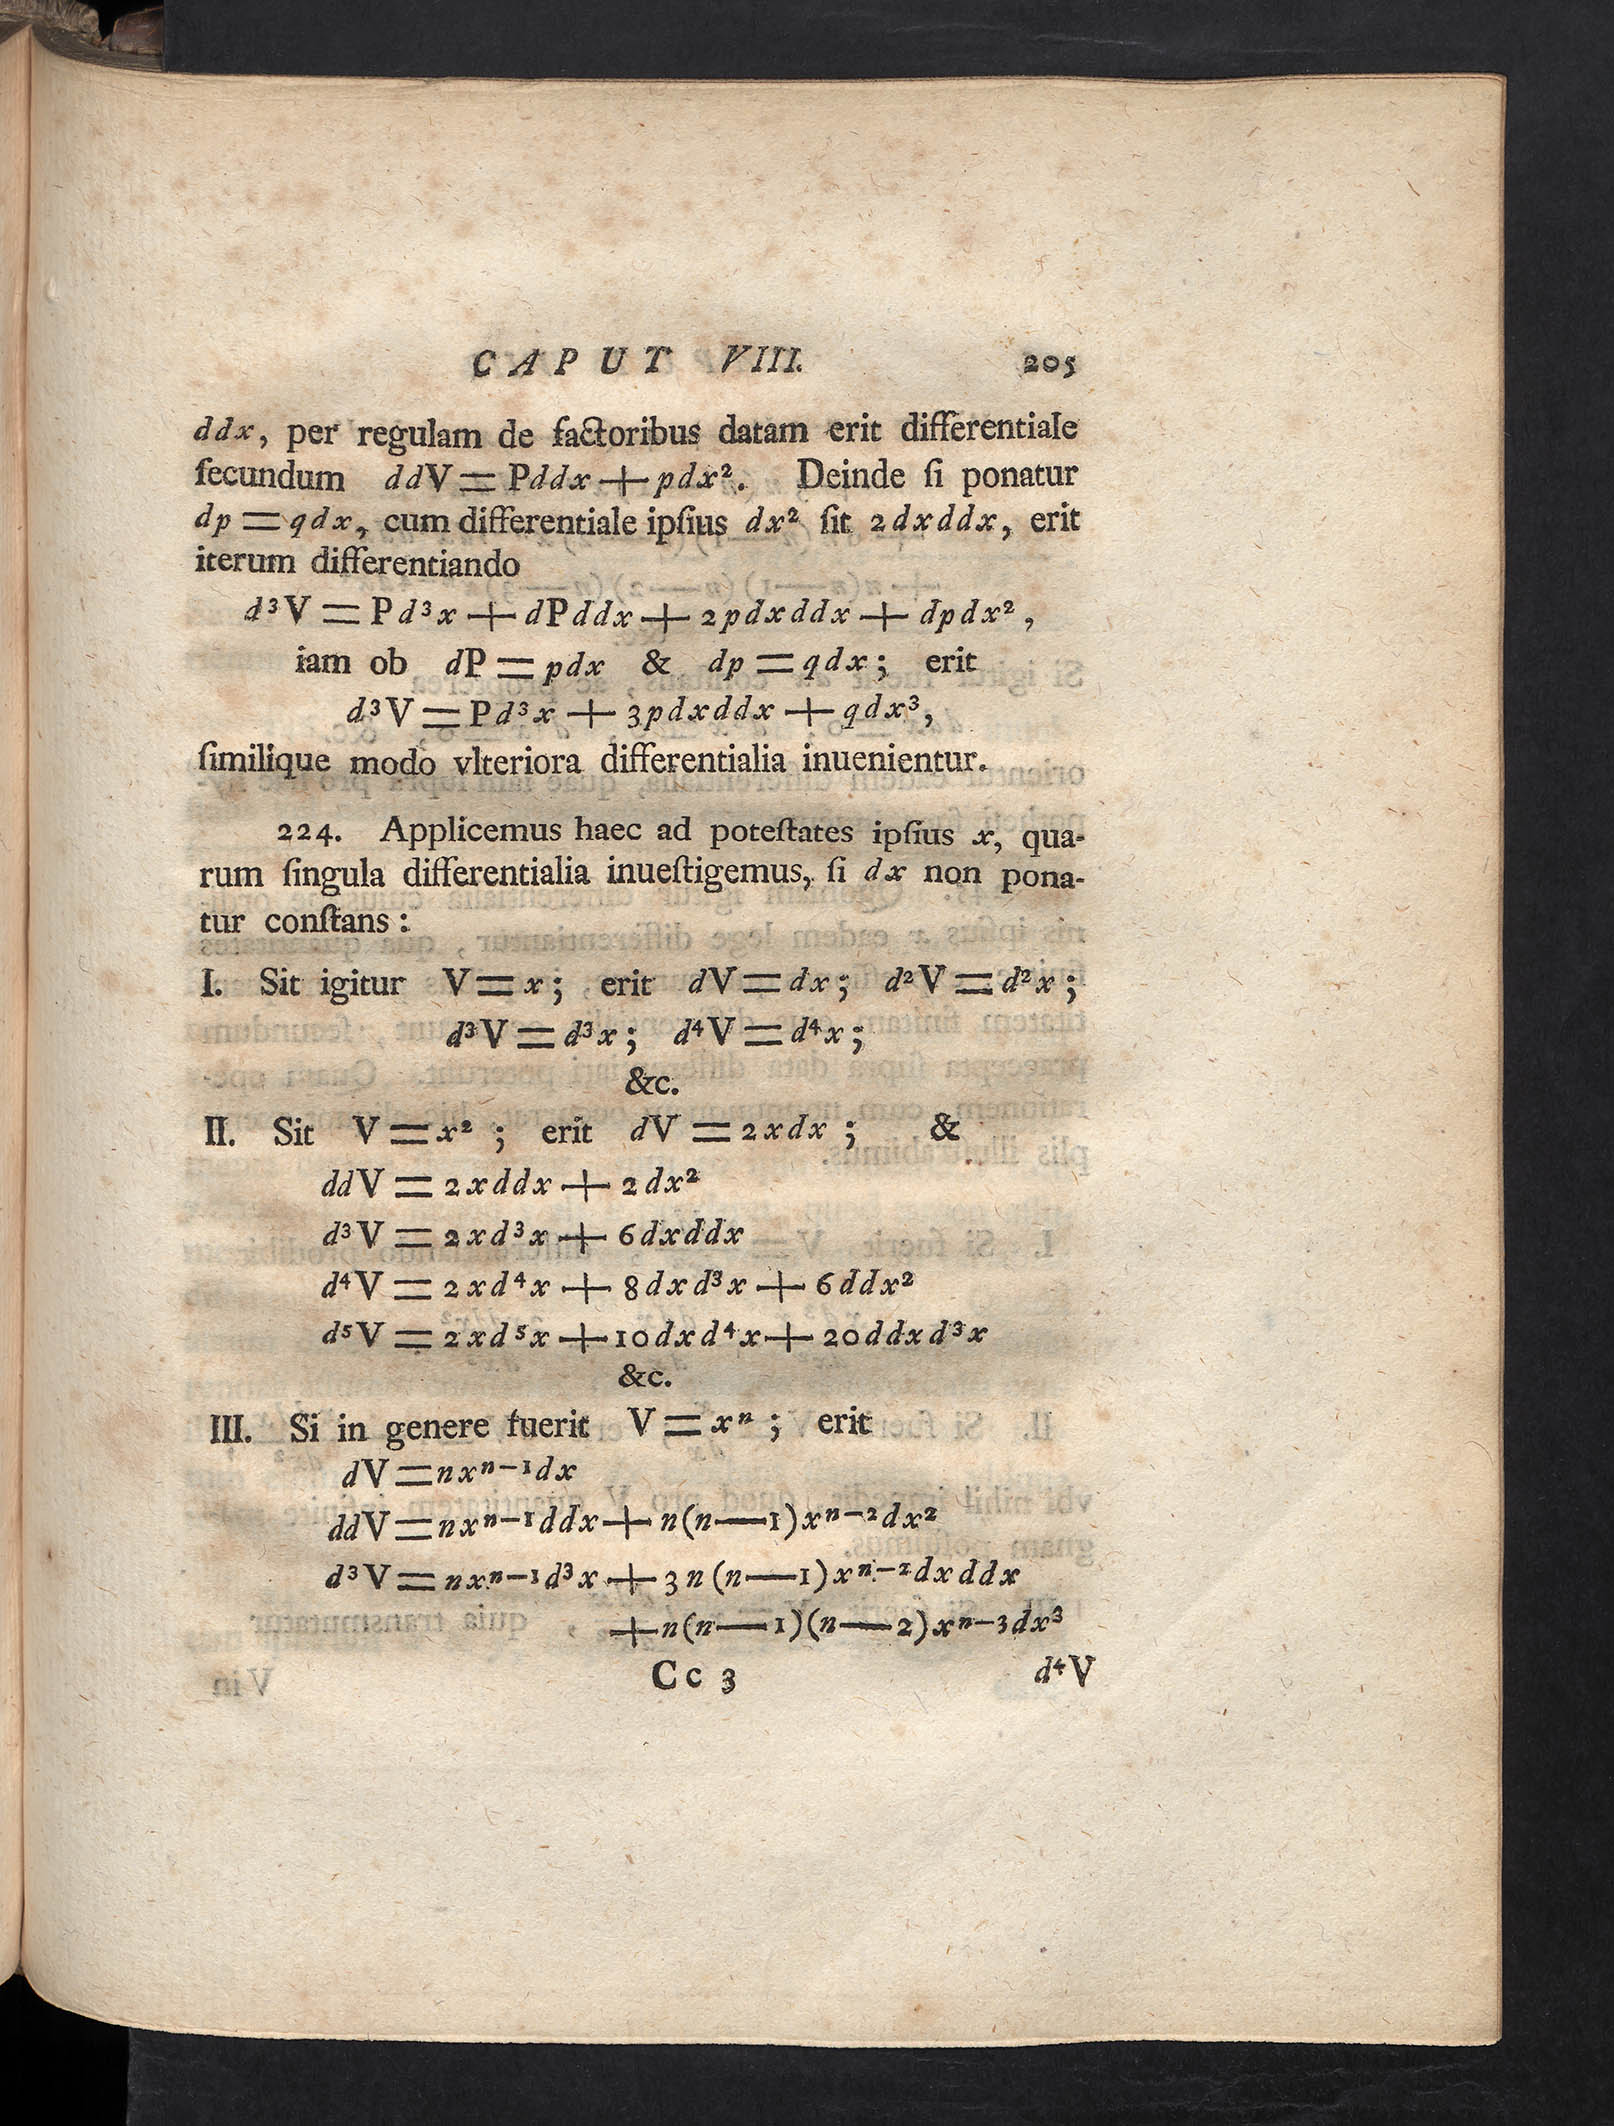 CAPUT VIII. 205
ddx, per regulam de factoribus datam erit differentiale
ſecundum ddV = Pddx + pdx². Deinde ſi ponatur
dp = qdx, cum differentiale ipſius dx² ſit 2dxddx, erit
iterum differentiando
d³V = Pd³x + dPddx + 2pdxddx + dpdx²,
iam ob dP = pdx & dp = qdx; erit
d³V = Pd³x + 3pdxddx + qdx³,
ſimilique modo vlteriora differentialia inuenientur.
224. Applicemus haec ad poteſtates ipſius x, qua-
rum ſingula differentialia inueſtigemus, ſi dx non pona-
tur conſtans:
I. Sit igitur V = x; erit dV = dx; d²V = d²x;
d³V = d³x; d⁴V = d⁴x;
&c.
II. Sit V = x²; erit dV = 2xdx; &
ddV = 2xddx + 2dx²
d³V = 2xd³x + 6dxddx
d⁴V = 2xd⁴x + 8dxd³x + 6ddx²
d⁵V = 2xd⁵x + 10dxd⁴x + 20ddxd³x
&c.
III. Si in genere fuerit V = xⁿ; erit
dV = nxⁿ⁻¹dx
ddV = nxⁿ⁻¹ddx + n(n—1)xⁿ⁻²dx²
d³V = nxⁿ⁻¹d³x + 3n(n—1)xⁿ⁻²dxddx
+ n(n—1)(n—2)xⁿ⁻³dx³
Cc 3 d⁴V